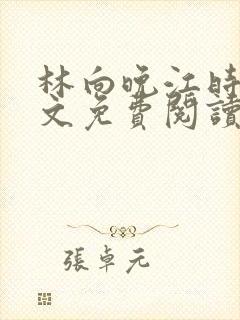 林向晚江時
文免費閱讀
張卓元